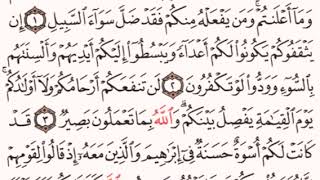 وَمَآ أَعۡلَنتُمۡۚ وَمَن يَفۡعَلۡهُ مِنكُمۡ فَقَدۡ ضَلَّ سَوَآءَ ٱلسَّبِيلِ ١ إِن
يَثۡقَفُوكُمۡ يَكُونُواْ لَكُمۡ أَعۡدَآءٗ وَيَبۡسُطُوٓاْ إِلَيۡكُمۡ أَيۡدِيَهُمۡ وَأَلۡسِنَتَهُم
بِٱلسُّوٓءِ وَوَدُّواْ لَوۡ تَكۡفُرُونَ ٢ لَن تَنفَعَكُمۡ أَرۡحَامُكُمۡ وَلَآ أَوۡلَٰدُكُمۡۚ
يَوۡمَ ٱلۡقِيَٰمَةِ يَفۡصِلُ بَيۡنَكُمۡۚ وَٱللَّهُ بِمَا تَعۡمَلُونَ بَصِيرٞ ٣ قَدۡ
كَانَتۡ لَكُمۡ أُسۡوَةٌ حَسَنَةٞ فِيٓ إِبۡرَٰهِيمَ وَٱلَّذِينَ مَعَهُۥٓ إِذۡ قَالُواْ لِقَوۡمِهِمۡ